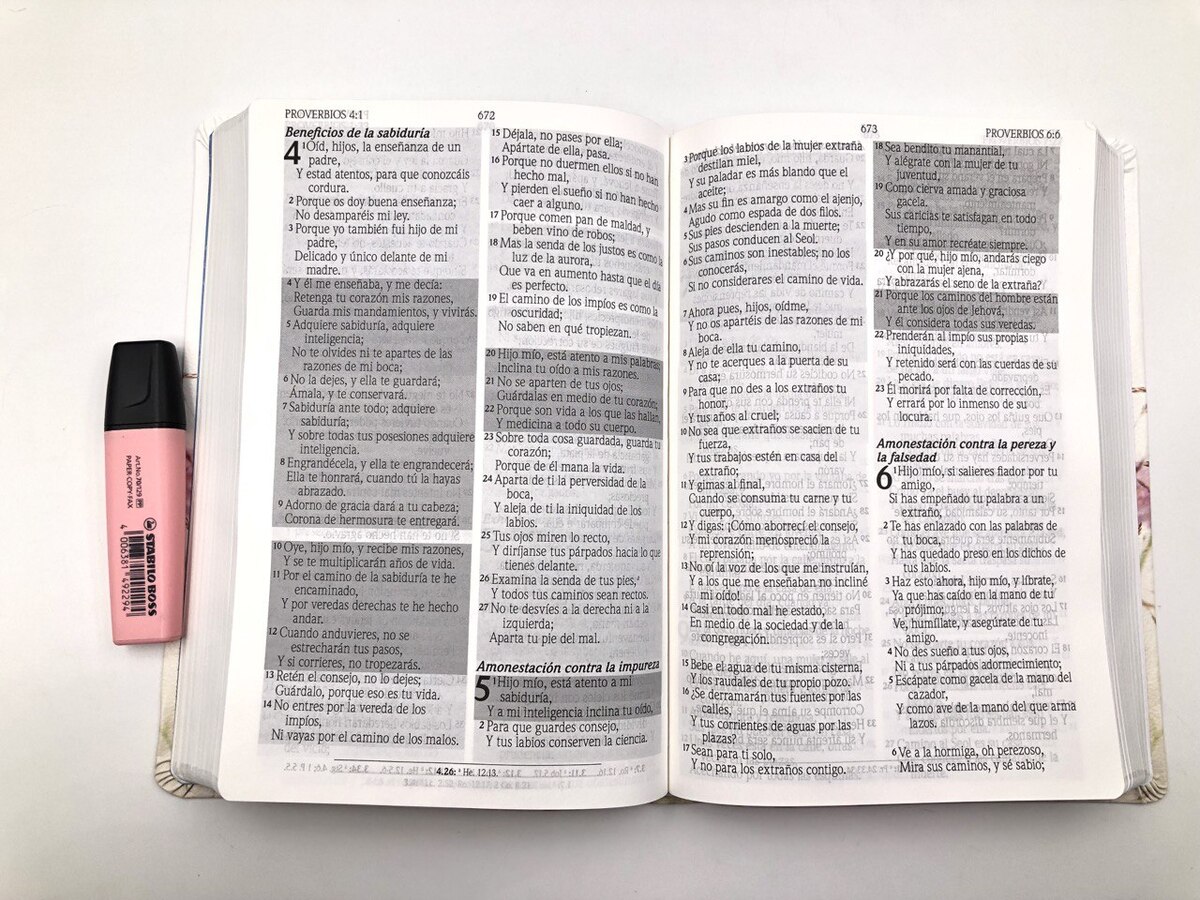 PROVERBIOS 4:1
672
Beneficios de la sabiduría
4 1Oíd, hijos, la enseñanza de un
padre,
Y estad atentos, para que conozcáis
cordura.
2 Porque os doy buena enseñanza;
No desamparéis mi ley.
3 Porque yo también fui hijo de mi
padre,
Delicado y único delante de mi
madre.
4 Y él me enseñaba, y me decía:
Retenga tu corazón mis razones,
Guarda mis mandamientos, y vivirás.
5 Adquiere sabiduría, adquiere
inteligencia;
No te olvides ni te apartes de las
razones de mi boca;
6 No la dejes, y ella te guardará;
Ámala, y te conservará.
7 Sabiduría ante todo; adquiere
sabiduría;
Y sobre todas tus posesiones adquiere
inteligencia.
8 Engrandécela, y ella te engrandecerá;
Ella te honrará, cuando tú la hayas
abrazado.
9 Adorno de gracia dará a tu cabeza;
Corona de hermosura te entregará.
10 Oye, hijo mío, y recibe mis razones,
Y se te multiplicarán años de vida.
11 Por el camino de la sabiduría te he
encaminado,
Y por veredas derechas te he hecho
andar.
12 Cuando anduvieres, no se
estrecharán tus pasos,
Y si corrieres, no tropezarás.
13 Retén el consejo, no lo dejes;
Guárdalo, porque eso es tu vida.
14 No entres por la vereda de los
impíos,
Ni vayas por el camino de los malos.
15 Déjala, no pases por ella;
Apártate de ella, pasa.
16 Porque no duermen ellos si no han
hecho mal,
Y pierden el sueño si no han hecho
caer a alguno.
17 Porque comen pan de maldad, y
beben vino de robos;
18 Mas la senda de los justos es como la
luz de la aurora,
Que va en aumento hasta que el día
es perfecto.
19 El camino de los impíos es como la
oscuridad;
No saben en qué tropiezan.
20 Hijo mío, está atento a mis palabras;
Inclina tu oído a mis razones.
21 No se aparten de tus ojos;
Guárdalas en medio de tu corazón;
22 Porque son vida a los que las hallan,
Y medicina a todo su cuerpo.
23 Sobre toda cosa guardada, guarda tu
corazón;
Porque de él mana la vida.
24 Aparta de ti la perversidad de la
boca,
Y aleja de ti la iniquidad de los
labios.
25 Tus ojos miren lo recto,
Y diríjanse tus párpados hacia lo que
tienes delante.
26 Examina la senda de tus pies,
Y todos tus caminos sean rectos.
27 No te desvíes a la derecha ni a la
izquierda;
Aparta tu pie del mal.
Amonestación contra la impureza
5 1Hijo mío, está atento a mi
sabiduría,
Y a mi inteligencia inclina tu oído,
2 Para que guardes consejo,
Y tus labios conserven la ciencia.
4.26: He. 12.13.
673
PROVERBIOS 6:6
3 Porque los labios de la mujer extraña
destilan miel,
Y su paladar es más blando que el
aceite;
4 Mas su fin es amargo como el ajenjo,
Agudo como espada de dos filos.
5 Sus pies descienden a la muerte;
Sus pasos conducen al Seol.
6 Sus caminos son inestables; no los
conocerás,
Si no considerares el camino de vida.
7 Ahora pues, hijos, oídme,
Y no os apartéis de las razones de mi
boca.
8 Aleja de ella tu camino,
Y no te acerques a la puerta de su
casa;
9 Para que no des a los extraños tu
honor,
Y tus años al cruel;
10 No sea que extraños se sacien de tu
fuerza,
Y tus trabajos estén en casa del
extraño;
11 Y gimas al final,
Cuando se consuma tu carne y tu
cuerpo,
12 Y digas: ¡Cómo aborrecí el consejo,
Y mi corazón menospreció la
reprensión;
13 No oí la voz de los que me instruían,
Y a los que me enseñaban no incliné
mi oído!
14 Casi en todo mal he estado,
En medio de la sociedad y de la
congregación.
15 Bebe el agua de tu misma cisterna,
Y los raudales de tu propio pozo.
16 ¿Se derramarán tus fuentes por las
calles,
Y tus corrientes de aguas por las
plazas?
17 Sean para ti solo,
Y no para los extraños contigo.
18 Sea bendito tu manantial,
Y alégrate con la mujer de tu
juventud,
19 Como cierva amada y graciosa
gacela.
Sus caricias te satisfagan en todo
tiempo,
Y en su amor recréate siempre.
20 ¿Y por qué, hijo mío, andarás ciego
con la mujer ajena,
Y abrazarás el seno de la extraña?
21 Porque los caminos del hombre están
ante los ojos de Jehová,
Y él considera todas sus veredas.
22 Prenderán al impío sus propias
iniquidades,
Y retenido será con las cuerdas de su
pecado.
23 Él morirá por falta de corrección,
Y errará por lo inmenso de su
locura.
Amonestación contra la pereza y
la falsedad
6 1Hijo mío, si salieres fiador por tu
amigo,
Si has empeñado tu palabra a un
extraño,
2 Te has enlazado con las palabras de
tu boca,
Y has quedado preso en los dichos de
tus labios.
3 Haz esto ahora, hijo mío, y líbrate,
Ya que has caído en la mano de tu
prójimo;
Ve, humíllate, y asegúrate de tu
amigo.
4 No des sueño a tus ojos,
Ni a tus párpados adormecimiento;
5 Escápate como gacela de la mano del
cazador,
Y como ave de la mano del que arma
lazos.
6 Ve a la hormiga, oh perezoso,
Mira sus caminos, y sé sabio;
STABILO BOSS
Art.No. 70/129
PAPER·COPY·FAX
4 006381 492294